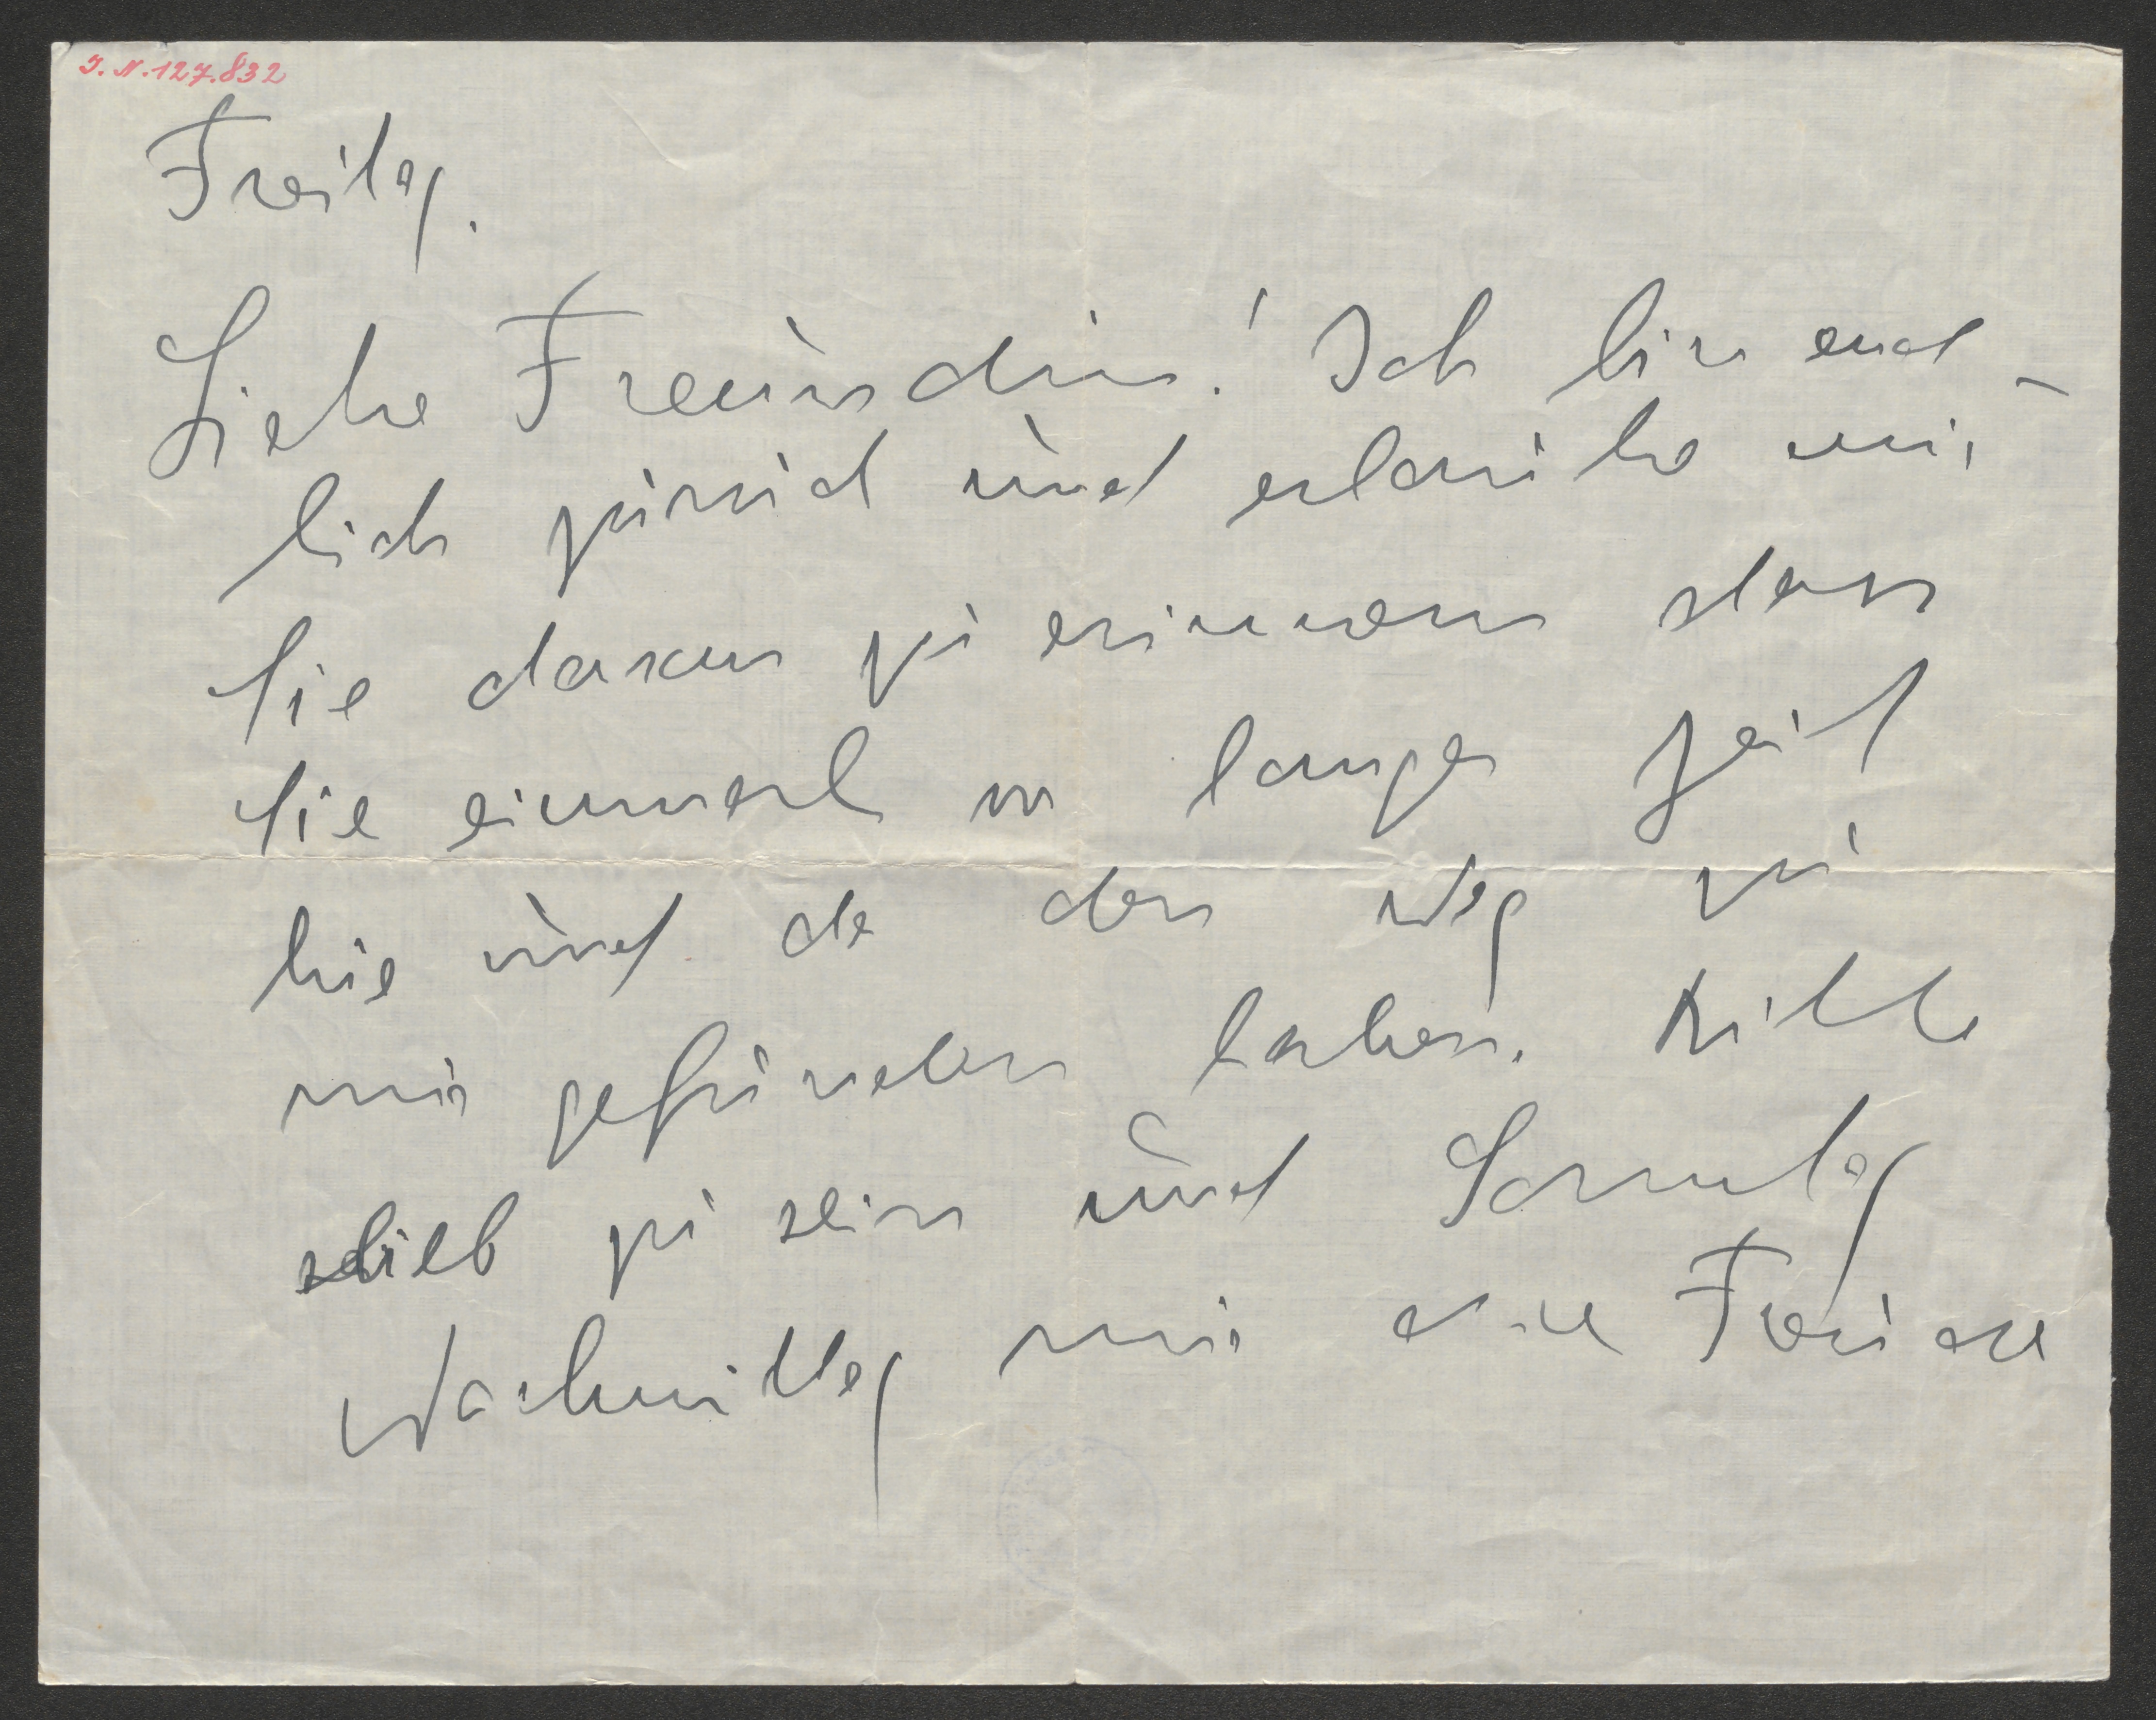 I. N. 127.832
Freitag.
Liebe Freundin! Ich bin end-
lich zurück und erlaube mir
Sie daran zu erinnern dass
Sie einmal vor langer Zeit
hie und da den Weg zu
mir gefunden haben. Bitte
lieb zu sein und Sonntag
Nachmittag mir die Freude